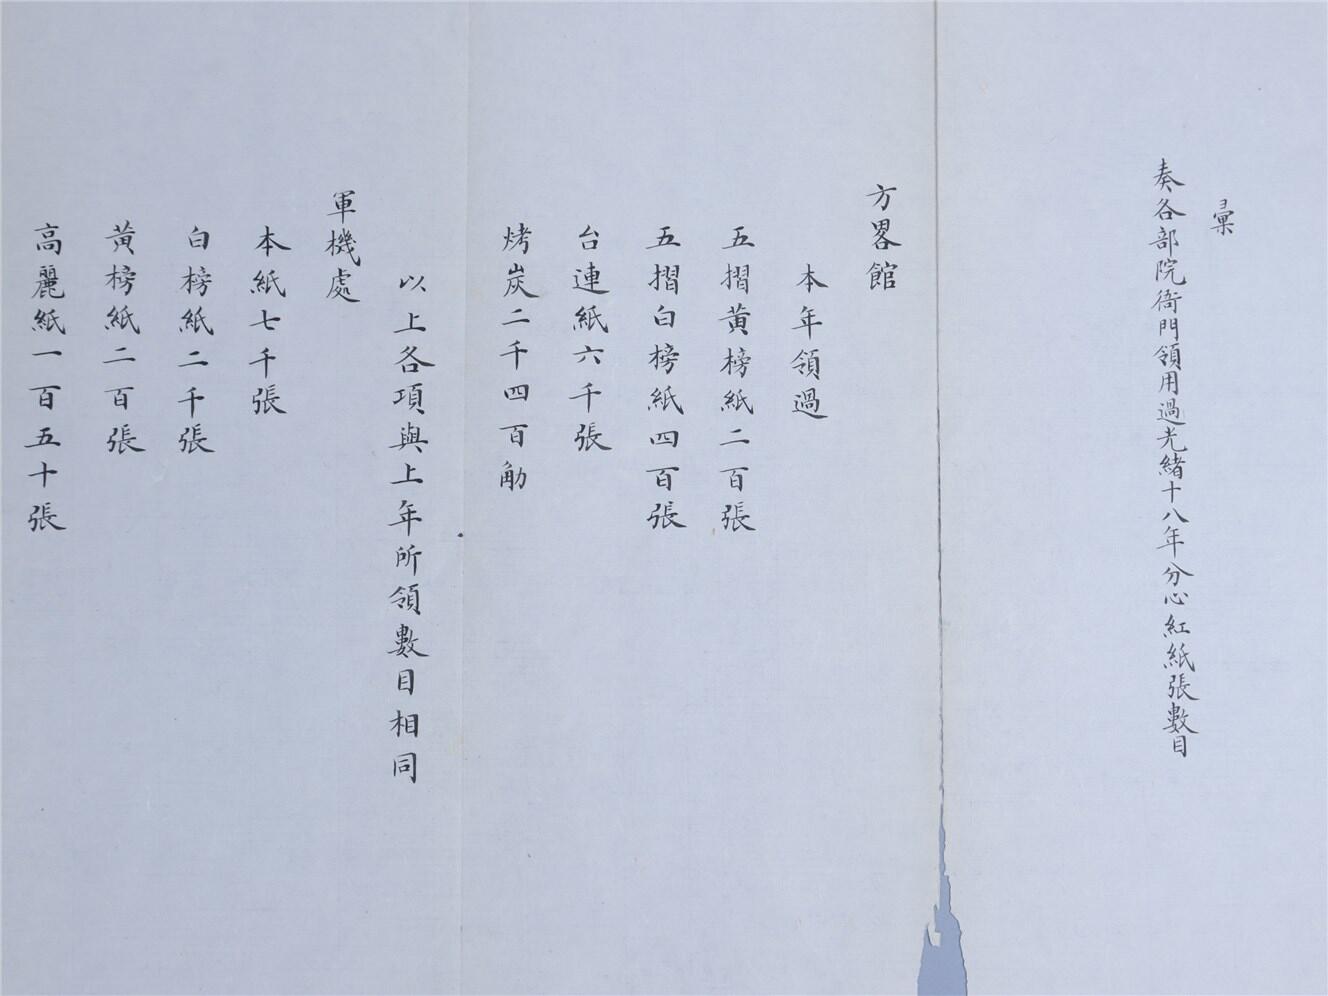 彙
奏各部院衙門領用過光緒十八年分心紅紙張數目
方畧館
本年領過
五摺黃榜紙二百張
五摺白榜紙四百張
台連紙六千張
烤炭二千四百觔
以上各項與上年所領數目相同
軍機處
本紙七千張
白榜紙二千張
黃榜紙二百張
高麗紙一百五十張